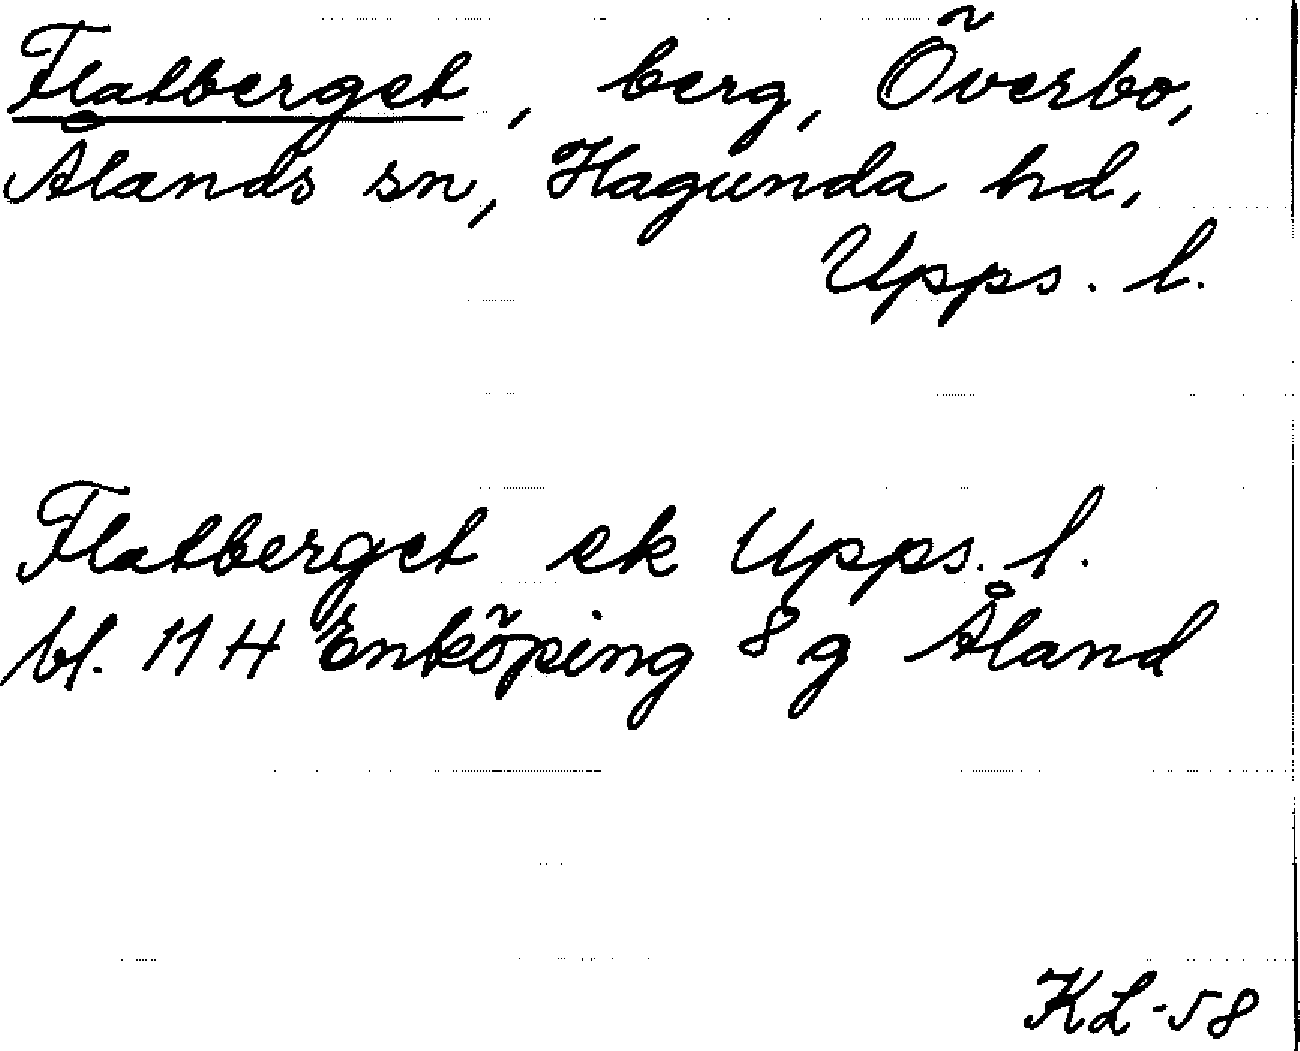 Flatberget, berg, Överbo,
Ålands sn, Hagunda hd,
Upps. l.
Flatberget ek Upps. l.
bl. 11 H Enköping 8 g Åland
KL-58